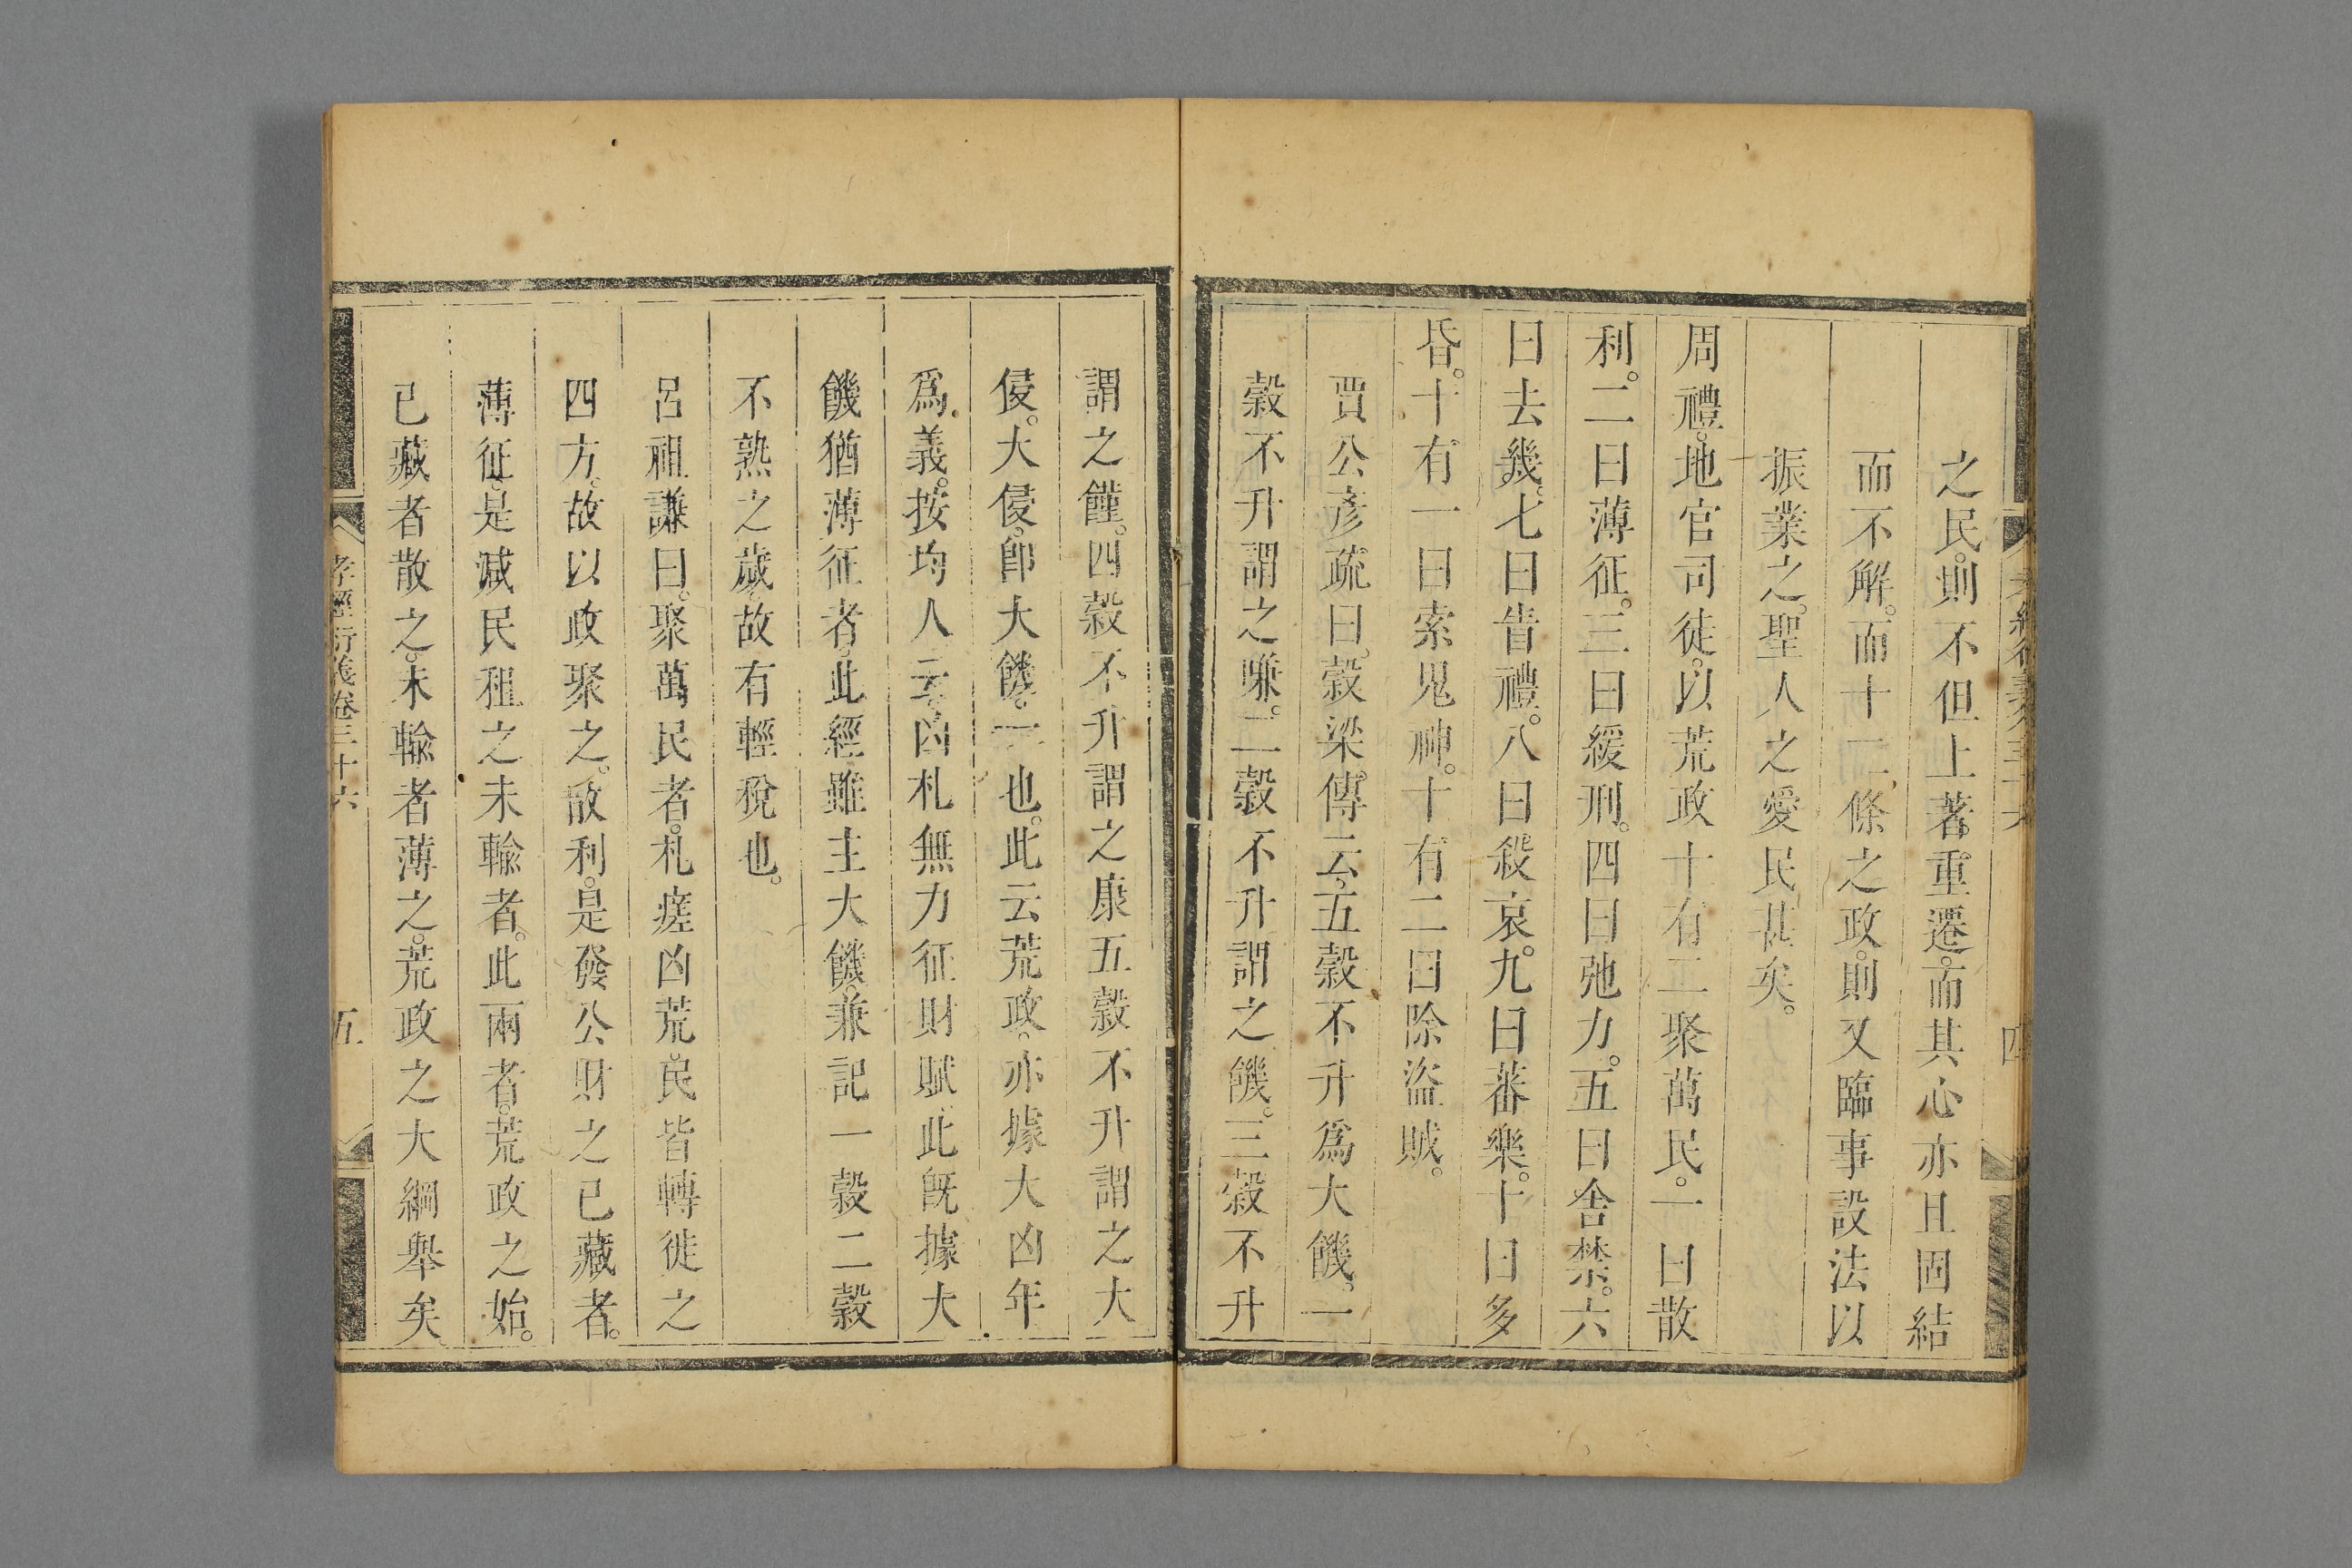 之民。則不但上著。重遷。而其心亦且固結
而不解。而十二條之政。則又臨事設法以
振業之。聖人之愛民甚矣。
周禮。地官司徒。以荒政十有二聚萬民。一曰散
利。二曰薄征。三曰緩刑。四曰弛力。五曰舍禁。六
曰去幾。七曰眚禮。八曰殺哀。九曰蕃樂。十曰多
昏。十有一曰索鬼神。十有二曰除盜賊。
賈公彥疏曰。穀梁傳云。五穀不升爲大饑。一
穀不升謂之嗛。二穀不升謂之饑。三穀不升
謂之饉。四穀不升謂之康五穀不升謂之大
侵。大侵。卽大饑。一也。此云荒政。亦據大凶年
爲義。按均人云。凶札無力征財賦此旣據大
饑猶薄征者。此經雖主大饑。兼記一穀二穀
不熟之歲。故有輕稅也。
呂祖謙曰。聚萬民者。札瘥凶荒。民皆轉徙之
四方。故以政聚之。散利。是發公財之已藏者。
薄征。是減民租之未輸者。此兩者。荒政之始。
已藏者散之。未輸者薄之。荒政之大綱舉矣
孝經衍義卷三十六
五
孝經衍義卷三十六
四